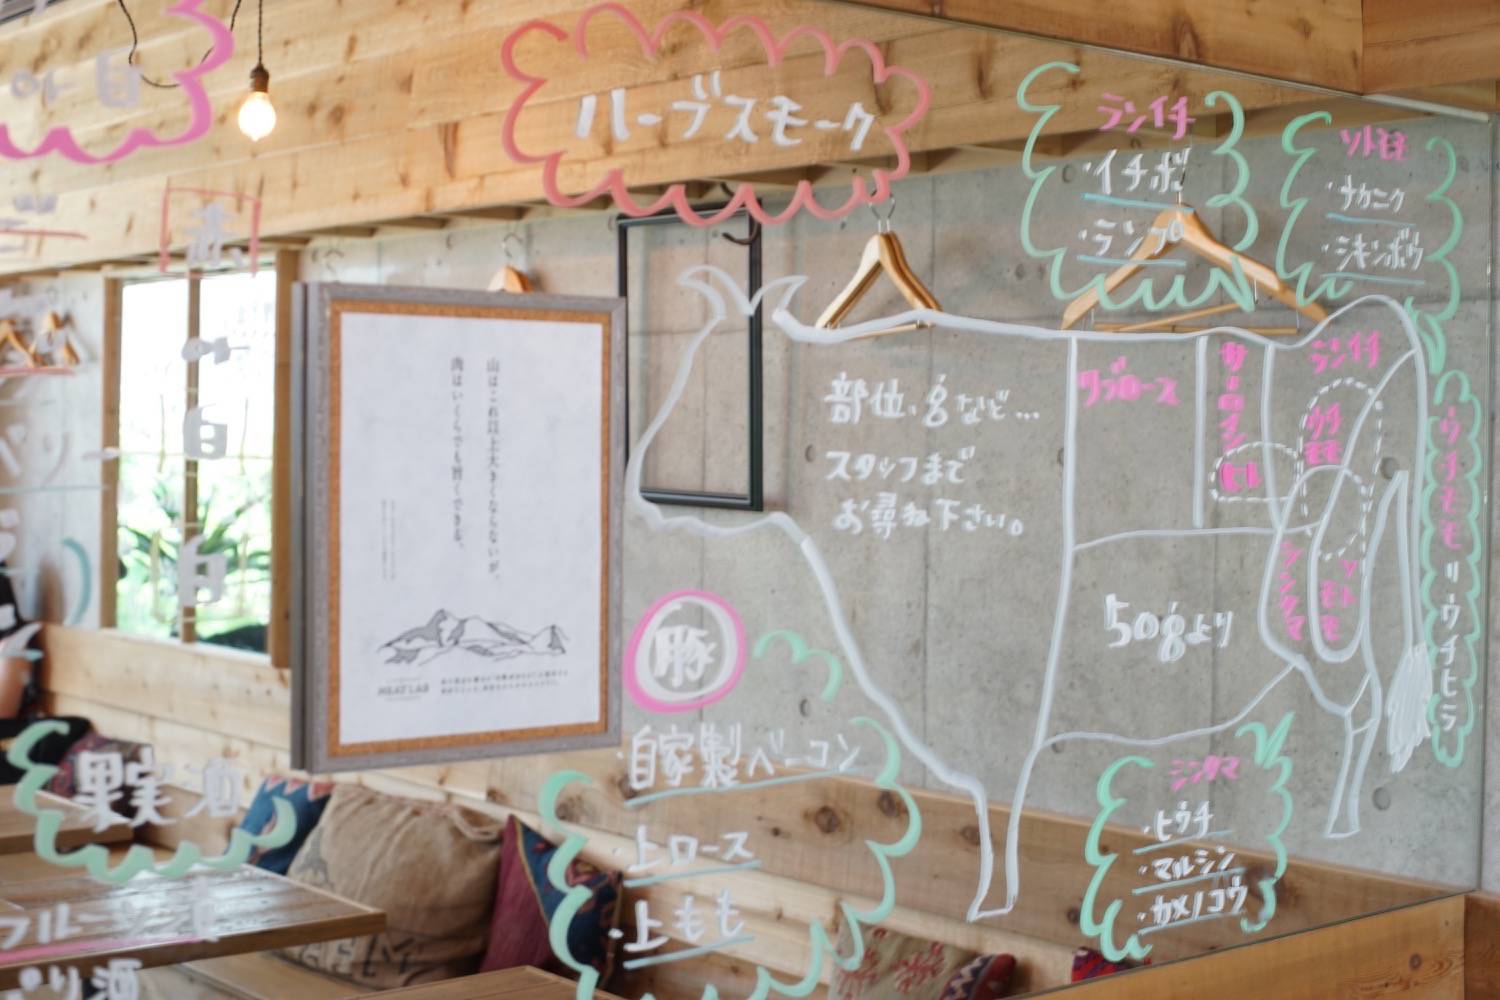 ハーブスモーク
ランイチ
・イチボ
・ランプ
ソトモモ
・ナカニク
・シキンボウ
山はこれ以上大きくならないが、
肉はいくらでも旨くできる。
MEAT LAB
部位、gなど…
スタッフまで
お尋ね下さい。
リブロース
サーロイン
ヒレ
ランイチ
ウチモモ
シンタマ
ソトモモ
50gより
ウチモモ
・ウチヒラ
豚
自家製ベーコン
・上ロース
・上もも
シンタマ
・ヒウチ
・マルシン
・カメノコウ
赤
白
果実酒